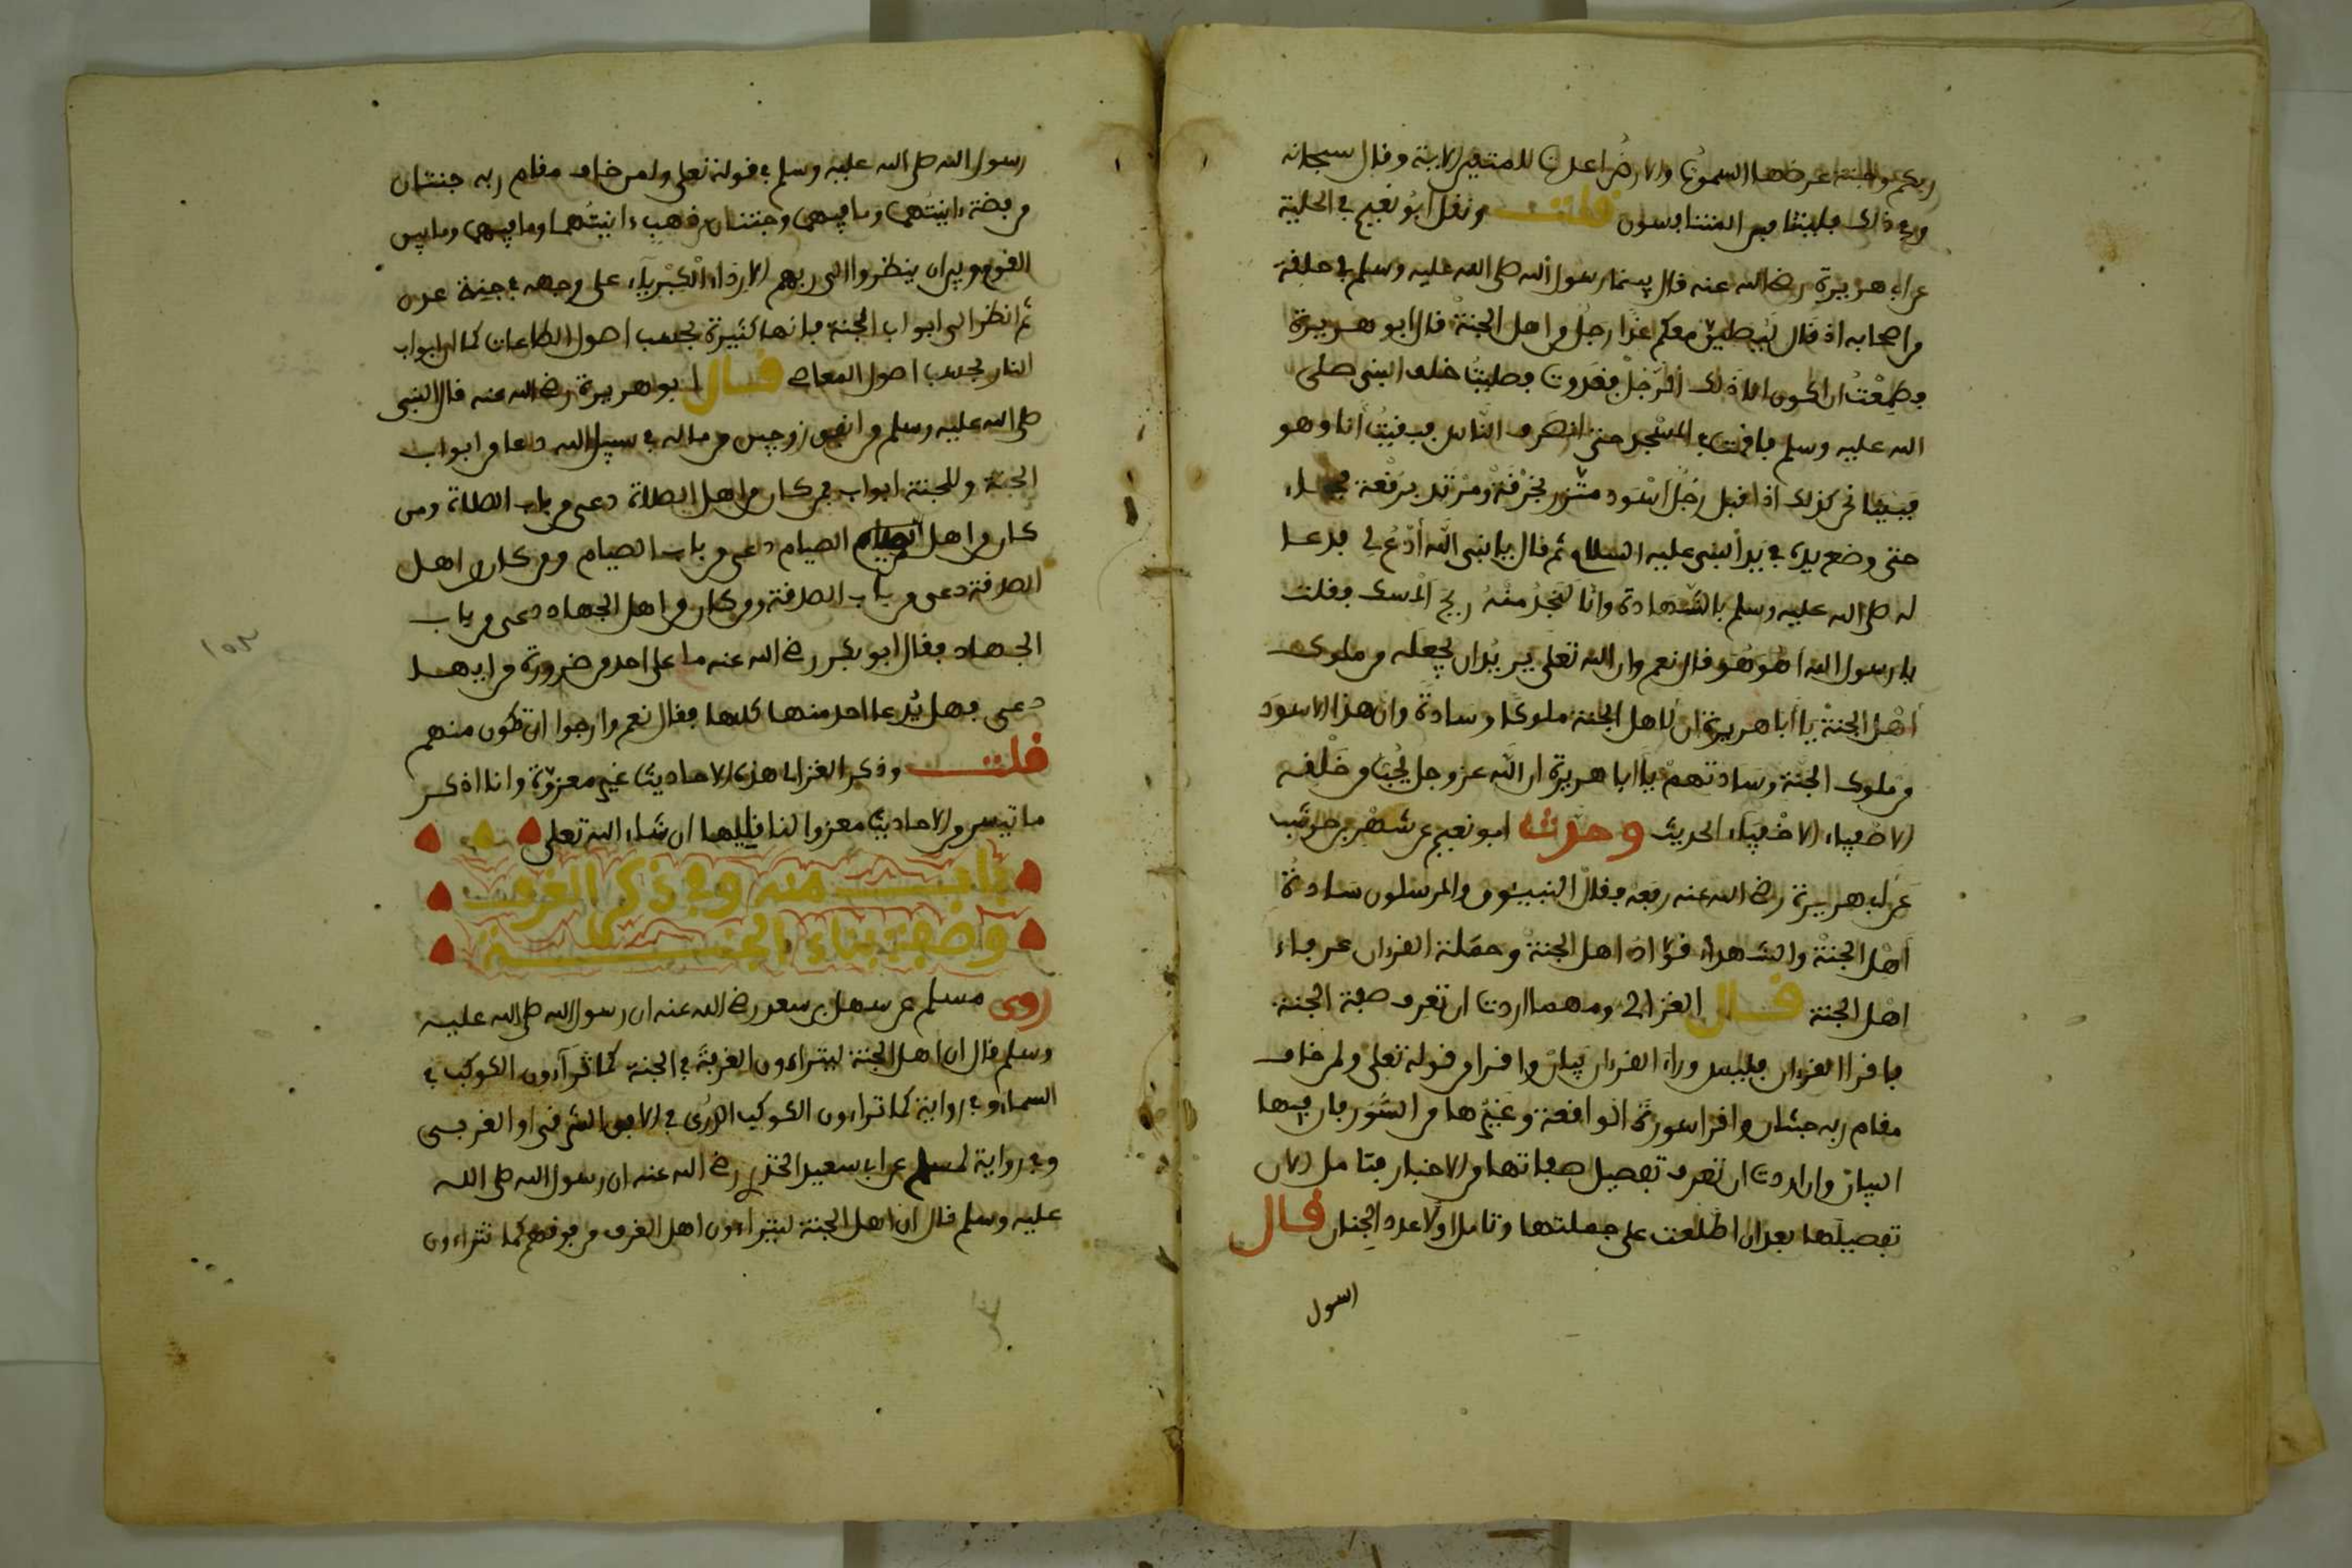 ربكم وجنة عرضها السموت والارض اعدت للمتقين الاية وقال سبحانه
وفي ذلك فليتنافس المتنافسون قلت ونقل ابو نعيم في الحلية
عن ابي هريرة رضي الله عنه قال بينما رسول الله صلى الله عليه وسلم في حلقة
من اصحابه اذ قال ليصلين معكم غدا رجل من اهل الجنة قال ابو هريرة
فطمعت ان اكون انا ذلك الرجل فغدوت فصليت خلف النبي صلى
الله عليه وسلم فاقمت في المسجد حتى انصرف الناس وبقيت انا وهو
فبينا نحن كذلك اذ اقبل رجل اسود متزر بخرقة ومرتد برقعة فجاء
حتى وضع يده في يد النبي عليه السلام ثم قال يا نبي الله ادع لي فدعا
له صلى الله عليه وسلم بالشهادة وانا لنجد منه ريح المسك فقلت
يا رسول الله اهو هو قال نعم وان الله تعلى يريد ان يجعله من ملوك
اهل الجنة يا ابا هريرة ان لاهل الجنة ملوكا وسادة وان هذا الاسود
من ملوك الجنة وسادتهم يا ابا هريرة ان الله عز وجل يحب من خلقه
الاصفياء الاخفياء الحديث وحدث ابو نعيم عن شهر بن حوشب
عن ابي هريرة رضي الله عنه رفعه فقال النبيون والمرسلون سادة
اهل الجنة والشهداء قواد اهل الجنة وحملة القرءان عرفاء
اهل الجنة قال الغزالي ومهما اردت ان تعرف صفة الجنة
فاقرا القرءان فليس وراء القرءان بيان واقرا من قوله تعلى ولمن خاف
مقام ربه جنتان واقرا سورة الواقعة وغيرها من السور فان فيها
البيان وان اردت ان تعرف تفصيل صفاتها من الاخبار فتامل الان
تفصيلها بعد ان اطلعت على جملتها وتامل اولا عدد الجنان قال
رسول
رسول الله صلى الله عليه وسلم في قوله تعلى ولمن خاف مقام ربه جنتان
من فضة ءانيتهما وما فيهما وجنتان من ذهب ءانيتهما وما فيهما وما بين
القوم وبين ان ينظروا الى ربهم الا رداء الكبرياء على وجهه في جنة عدن
ثم انظر الى ابواب الجنة فانها كثيرة بحسب اصول الطاعات كما ان ابواب
النار بحسب اصول المعاصي قال ابو هريرة رضي الله عنه قال النبي
صلى الله عليه وسلم من انفق زوجين من ماله في سبيل الله دعا من ابواب
الجنة وللجنة ابواب فمن كان من اهل الصلاة دعى من باب الصلاة ومن
كان من اهل الصيام دعى من باب الصيام ومن كان من اهل
الصدقة دعى من باب الصدقة ومن كان من اهل الجهاد دعى من باب
الجهاد فقال ابو بكر رضي الله عنه ما على احد من ضرورة من ايها
دعى فهل يدعا احد منها كلها فقال نعم وارجوا ان تكون منهم
قلت وذكر الغزالي هذه الاحاديث غير معزوة وانا اذكر
ما تيسر من الاحاديث معزوا لناقليها ان شاء الله تعلى
باب منه وفي ذكر الغرف
وصفة بناء الجنة
روى مسلم عن سهل بن سعد رضي الله عنه ان رسول الله صلى الله عليه
وسلم قال ان اهل الجنة ليتراءون الغرفة في الجنة كما تراءون الكوكب في
السماء وفي رواية كما تراءون الكوكب الدري في الافق الشرقي او الغربي
وفي رواية لمسلم عن ابي سعيد الخدري رضي الله عنه ان رسول الله صلى الله
عليه وسلم قال ان اهل الجنة ليتراءون اهل الغرف من فوقهم كما تتراءون